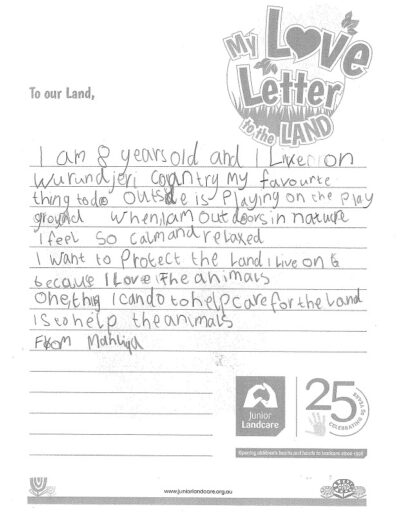 My Love Letter to the LAND
To our Land,
I am 8 years old and I Live on
Wurundjeri country my favourite
thing to do outside is Playing on the Play
ground when i am outdoors in nature
I feel so calm and relaxed
I want to Protect the Land I Live on
because I Love the animals
One thing I can do to help care for the Land
Is to help the animals
From Mahliya
Junior
Landcare
25
CELEBRATING 25 YEARS
Opening children's hearts and hands to landcare since 1998
www.juniorlandcare.org.au